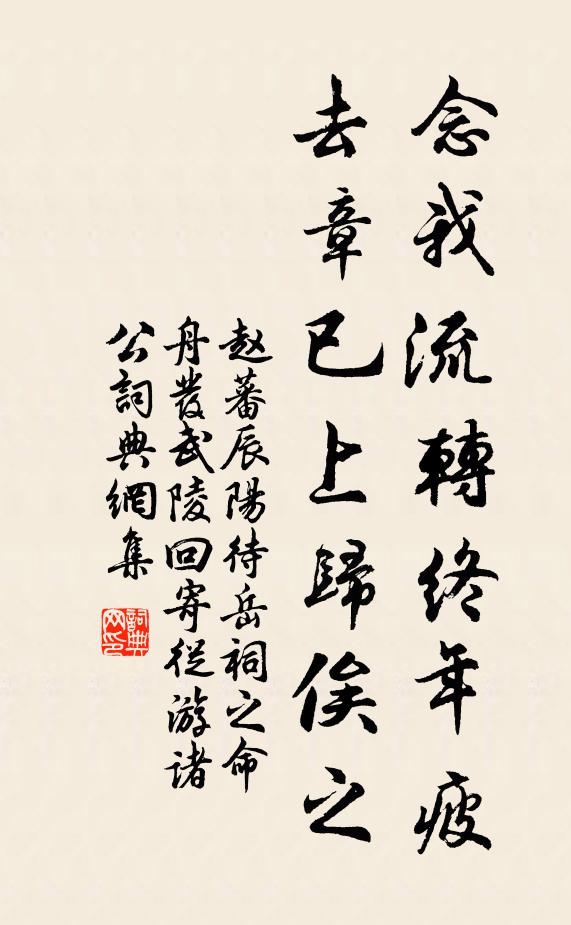 念我流轉終年疲
去章已上歸俟之
赵蕃辰陽待岳祠之命
舟發武陵回寄從游諸
公詞典網集
詞典
网印